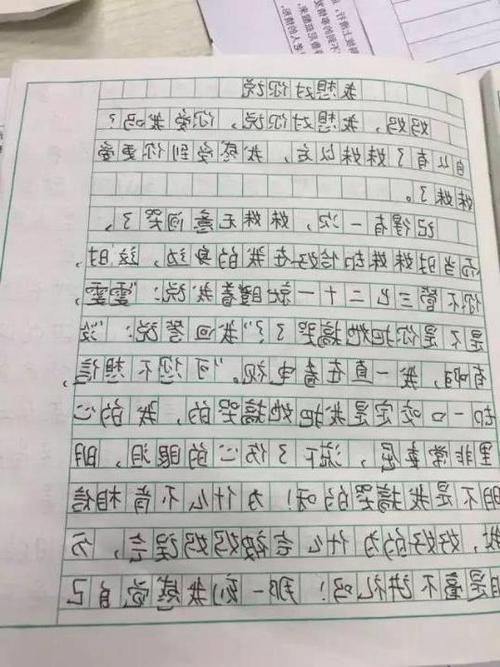 我想对你说
妈妈，我想对你说，你爱我吗？
自从有了妹妹以后，我感到你更爱
妹妹了。
记得有一次，妹妹无意间哭了，
而当时妹妹的恰好在我的身边，这时，
你不管三七二十一就瞪着我说：“雯雯，
是不是你把她搞哭了？”我回答说：“没
有啊，我一直在看电视。”可您不想信，
却一口咬定是我把她搞哭的，我的心
里非常委屈，流下了伤心的眼泪，明
明不是我搞哭的呀！为什么不肯相信
我，好好的为什么会被妈妈误会，分
明是毫不讲礼吗！那一刻我感觉自己